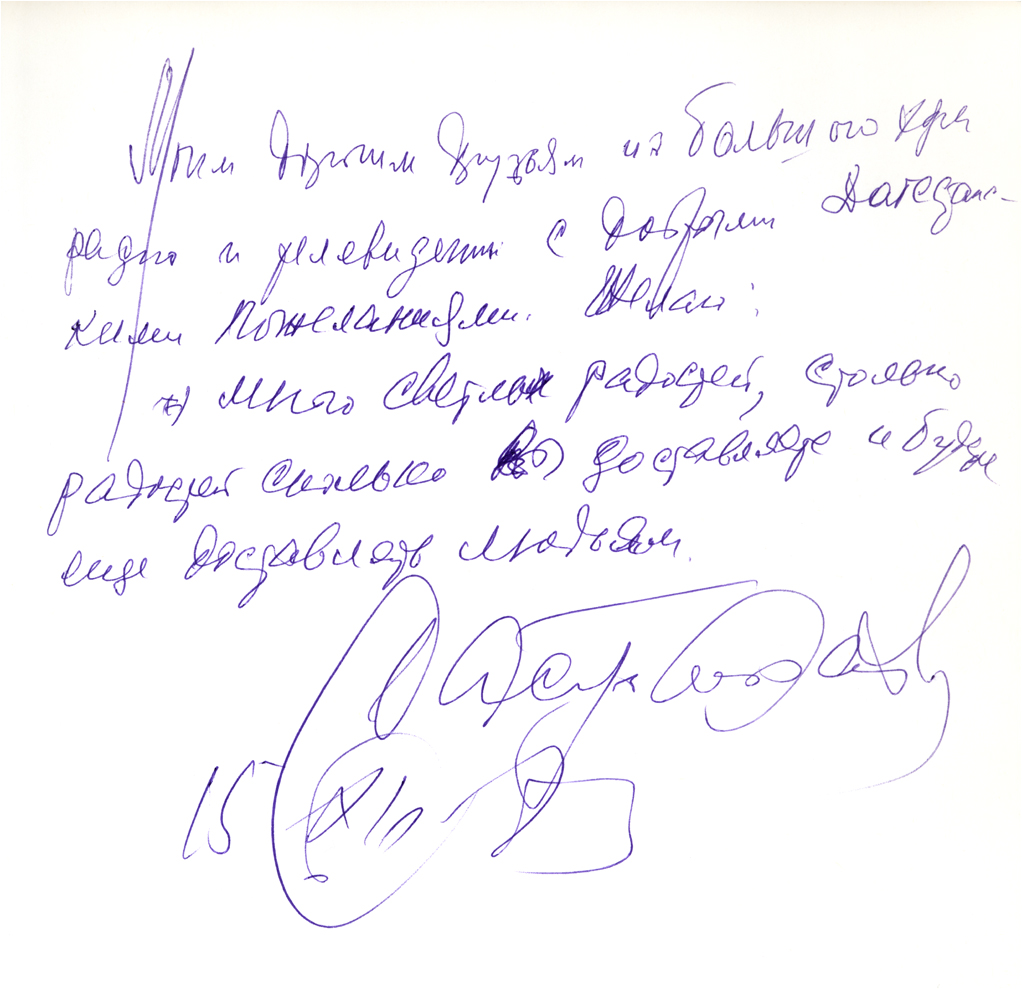 Моим дорогим друзьям из большого хора
радио и телевидения с добрыми Дагестанс-
кими пожеланиями. Желаю:
много светлых радостей, столько
радостей сколько Вы доставляете и будете
еще доставлять людям.
15